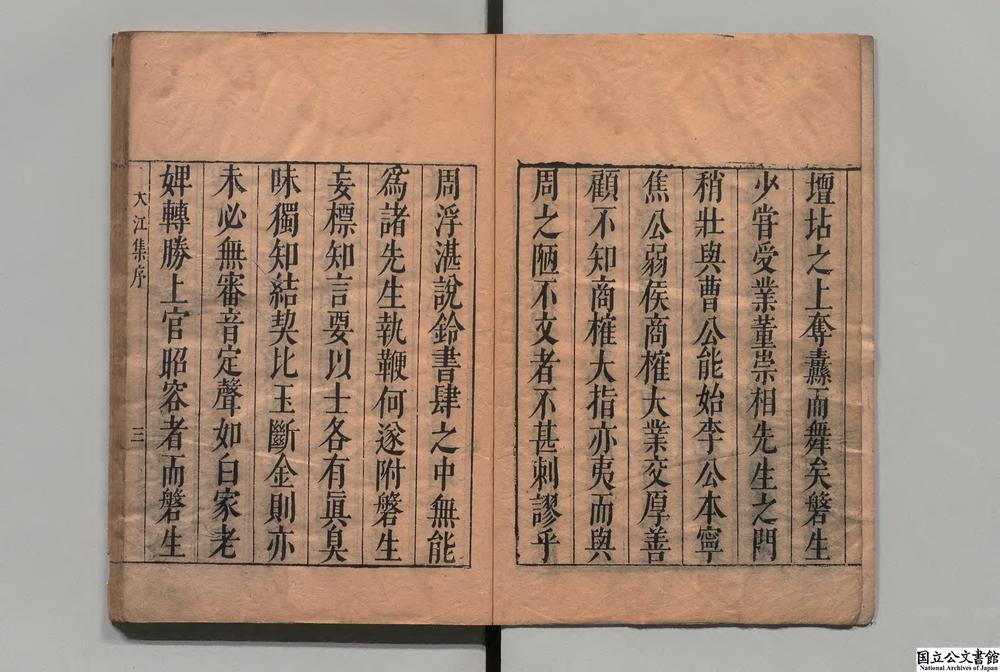 壇坫之上奪纛而舞矣磐生
少嘗受業董崇相先生之門
稍壯與曹公能始李公本寧
焦公弱侯商榷大業交厚善
顧不知商榷大指亦夷而與
周之陋不文者不甚刺謬乎
周浮湛說鈴書肆之中無能
爲諸先生執鞭何遂附磐生
妄標知言要以士各有眞臭
味獨知結契比玉斷金則亦
未必無審音定聲如白家老
婢轉勝上官昭容者而磐生
大江集序
三
国立公文書館
National Archives of Japan